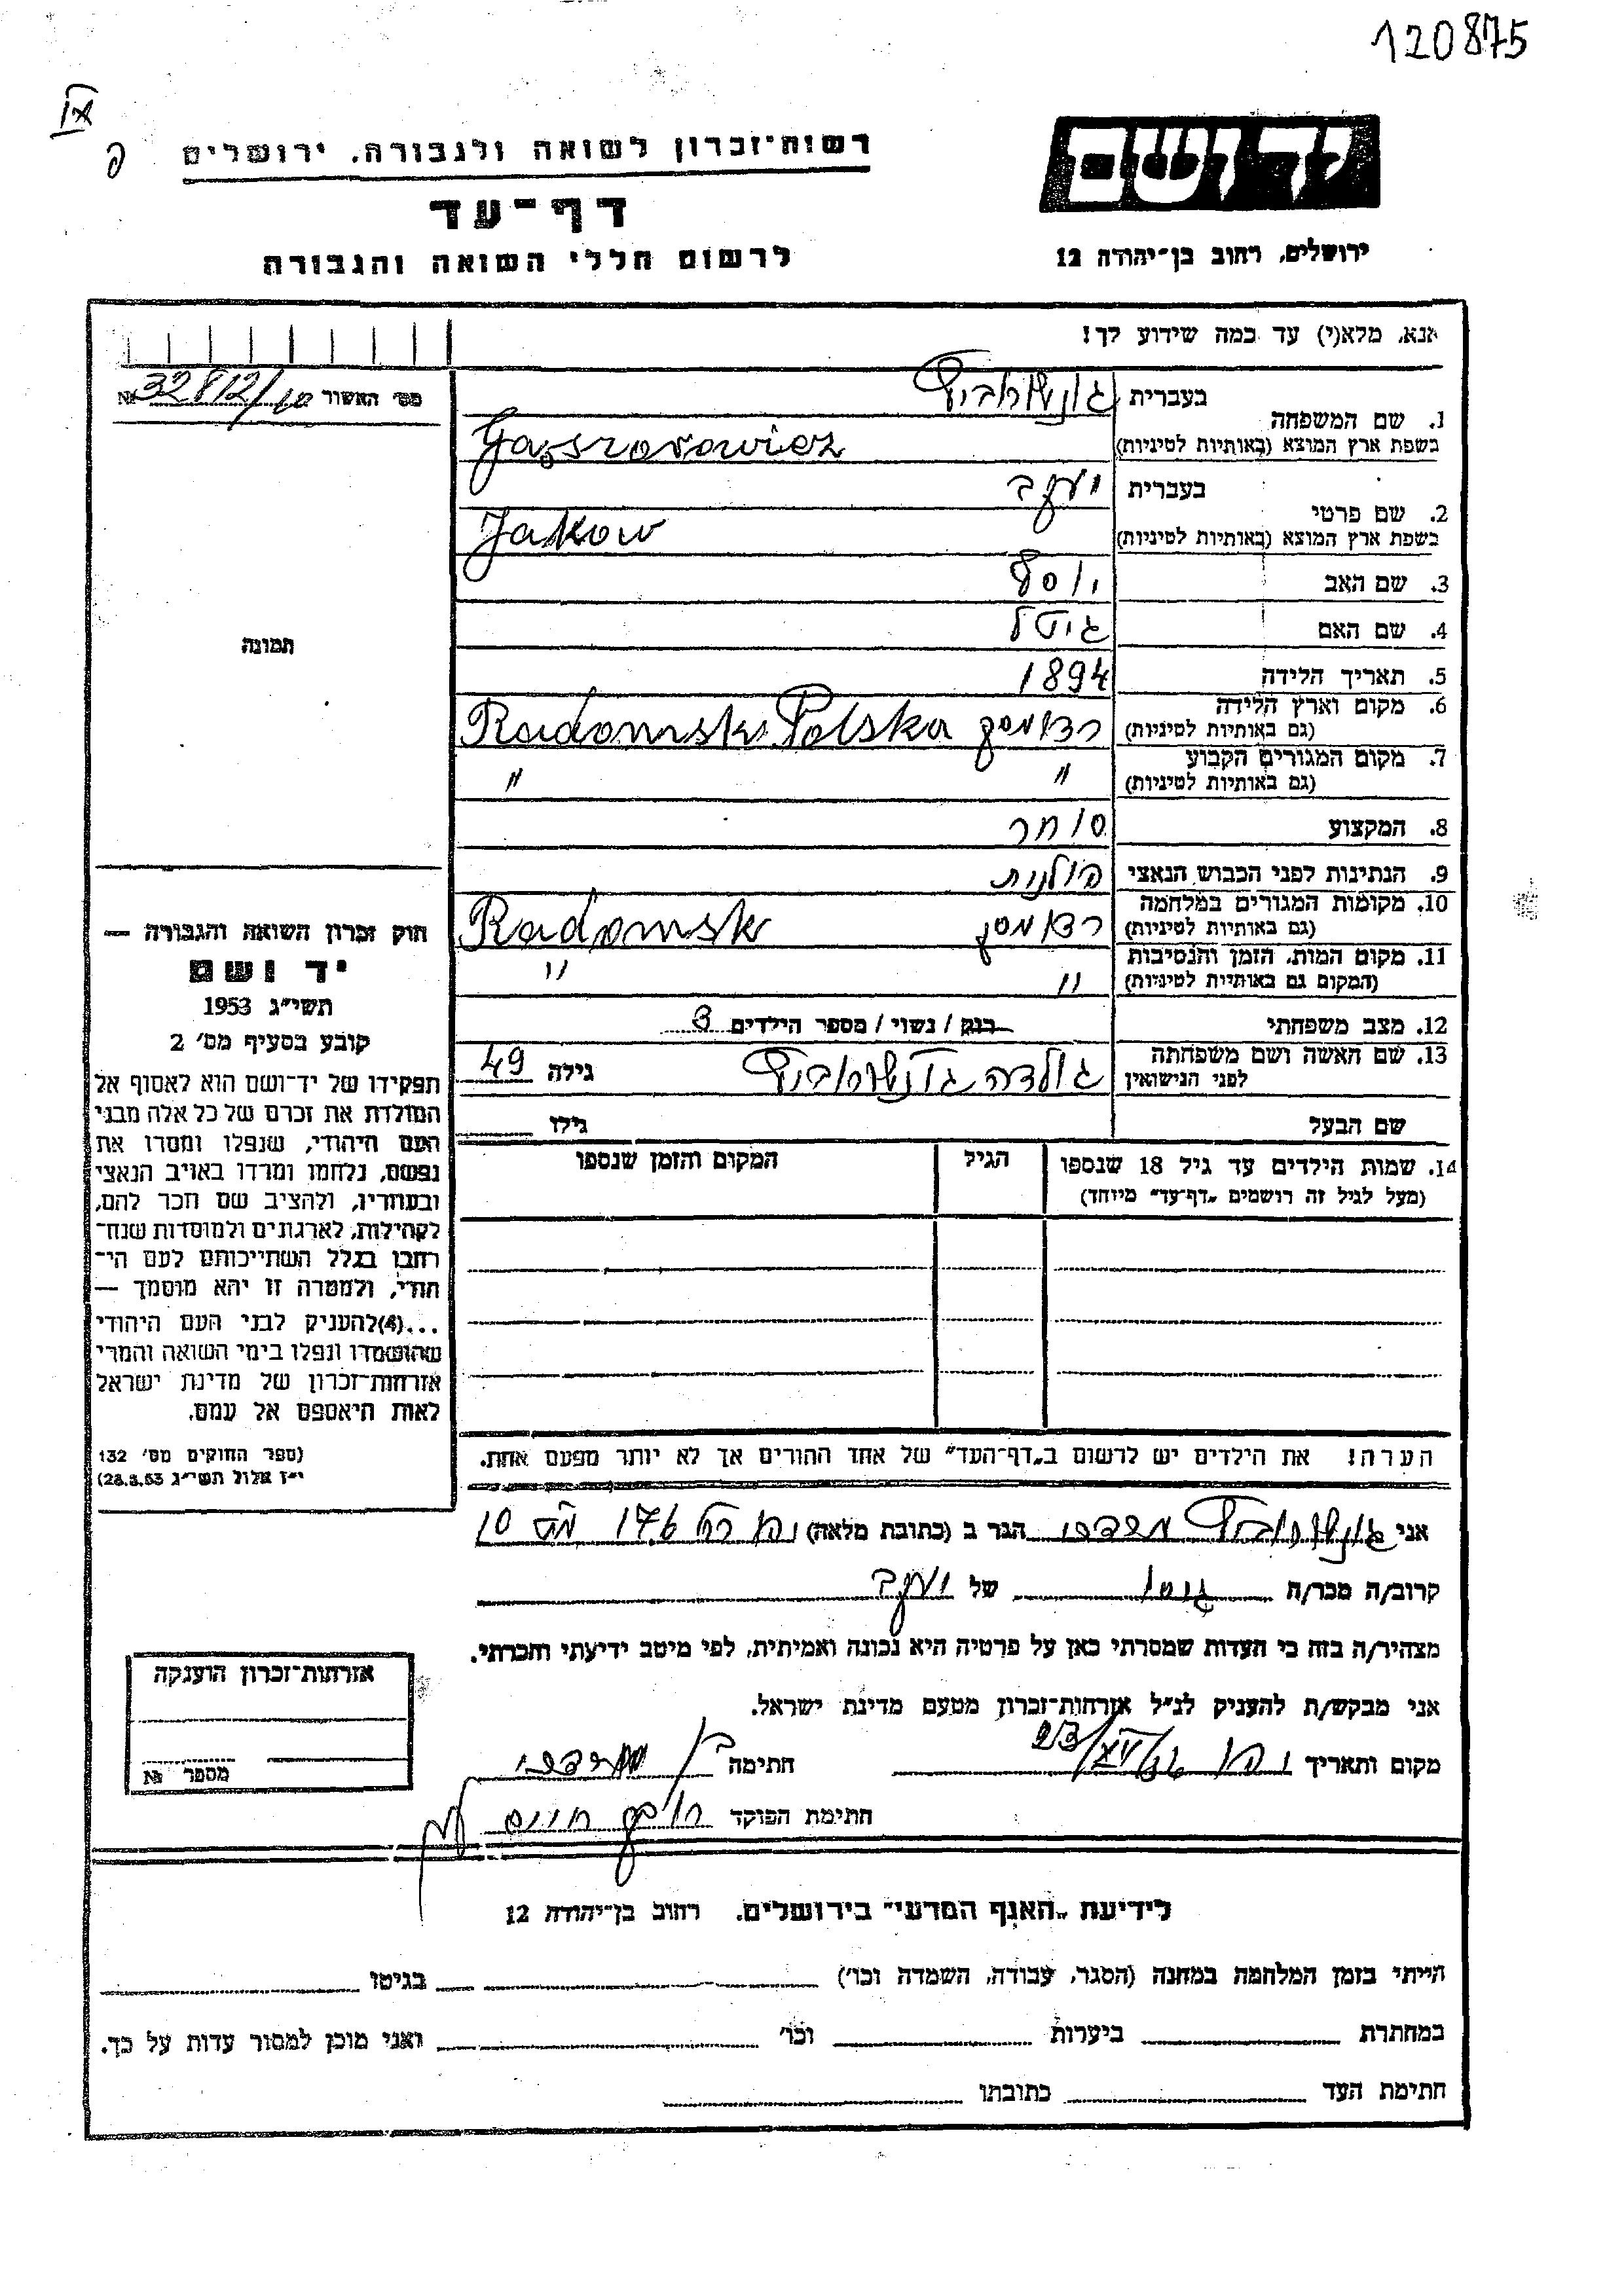 120875
IX
רשות־זכרון לשואה ולגבורה, ירושלים
ידושם
דף־עד
לרשום חללי השואה והגבורה
ירושלים, רחוב בן־יהודה 12
אנא, מלא(י) עד כמה שידוע לך!
מס׳ האשור № 32812/
1. שם המשפחה
בעברית
בשפת ארץ המוצא (באותיות לטיניות)
2. שם פרטי
בעברית יעקב
בשפת ארץ המוצא (באותיות לטיניות) Jakow
3. שם האב יוסף
4. שם האם גיטל
תמונה
5. תאריך הלידה 1894
6. מקום וארץ הלידה
(גם באותיות לטיניות) רדומסק Radomsk Polska
7. מקום המגורים הקבוע
(גם באותיות לטיניות) " "
8. המקצוע סוחר
9. הנתינות לפני הכבוש הנאצי פולנית
10. מקומות המגורים במלחמה
(גם באותיות לטיניות) רדומסק Radomsk
11. מקום המות, הזמן והנסיבות
(המקום גם באותיות לטיניות) " "
12. מצב משפחתי רווק / נשוי / מספר הילדים 3
13. שם האשה ושם משפחתה
לפני הנישואין גולדה גילה 49
שם הבעל גילו
14. שמות הילדים עד גיל 18 שנספו הגיל המקום והזמן שנספו
(מעל לגיל זה רושמים „דף־עד" מיוחד)
הערה! את הילדים יש לרשום ב„דף־העד" של אחד ההורים אך לא יותר מפעם אחת.
חוק זכרון השואה והגבורה —
יד ושם
תשי״ג 1953
קובע בסעיף מס׳ 2
תפקידו של יד־ושם הוא לאסוף אל
המולדת את זכרם של כל אלה מבני
העם היהודי, שנפלו ומסרו את
נפשם, נלחמו ומרדו באויב הנאצי
ובעוזריו, ולהציב שם וזכר להם,
לקהילות, לארגונים ולמוסדות שנח־
רחבו בגלל השתייכותם לעם הי־
הודי, ולמטרה זו יהא מוסמך —
...(4)להעניק לבני העם היהודי
שהושמדו ונפלו בימי השואה והמרי
אזרחות־זכרון של מדינת ישראל
לאות היאספם אל עמם.
(ספר החוקים מס׳ 132
י״ז אלול תשי״ג 28.8.53)
אני הגר ב (כתובת מלאה)
קרוב/ה מכר/ה של יעקב
מצהיר/ה בזה כי העדות שמסרתי כאן על פרטיה היא נכונה ואמיתית, לפי מיטב ידיעתי והכרתי.
אני מבקש/ת להעניק לנ״ל אזרחות־זכרון מטעם מדינת ישראל.
מקום ותאריך חתימה
חתימת הפוקד
אזרחות־זכרון הוענקה
מספר №
לידיעת „האגף המדעי" בירושלים. רחוב בן־יהודה 12
הייתי בזמן המלחמה במחנה (הסגר, עבודה, השמדה וכו׳) בגיטו
במחתרת ביערות וכו׳ ואני מוכן למסור עדות על כך.
חתימת העד כתובתו